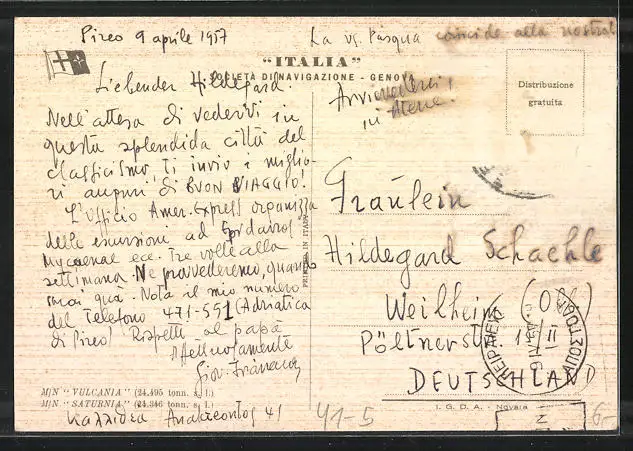 Pireo 9 aprile 1957
La vs. Pasqua coincide alla nostra!
"ITALIA"
SOCIETÀ DI NAVIGAZIONE - GENOVA
Distribuzione
gratuita
Liebender Hildegard.
Arrivederci
in Atene!
Nell'attesa di vedervi in
questa splendida città del
classicismo, Ti invio i miglio-
ri auguri di BUON VIAGGIO!
L'Ufficio Amer. Express organizza
delle escursioni ad Epidavros
Mycaenae ecc. Tre volte alla
settimana. Ne provvederemo, quando
sarai quà. Nota il mio numero
del telefono 471-551 (Adriatica
di Pireo) Rispetti al papà
Affettuosamente
Giov.
M/N "VULCANIA" (24.495 tonn. s. l.)
M/N "SATURNIA" (24.346 tonn. s. l.)
Καλλιθέα 41
PRINTED IN ITALY
Fräulein
Hildegard Schaehle
Weilheim (Obb)
Pöltnerstr. 1
DEUTSCHLAND
ΠΕΙΡΑΙΕΥΣ
I. G. D. A. - Novara
41-5
6-